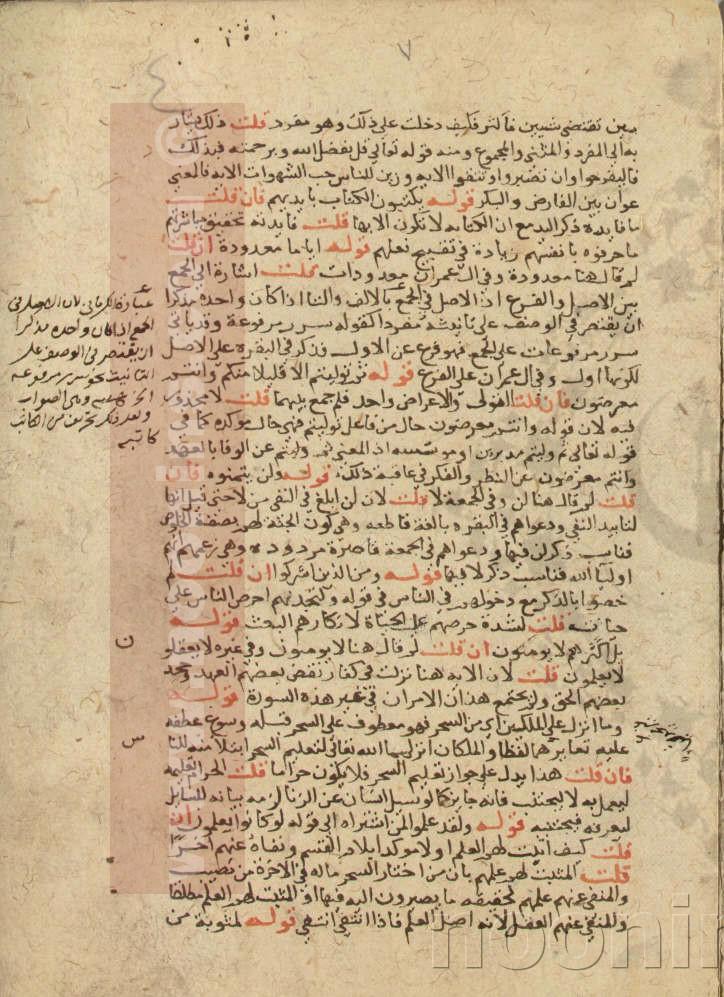 بين تقتضي شيئين فأكثر فكيف دخلت على ذلك وهو مفرد قلت ذلك يشار
به الى المفرد والمثنى والمجموع ومنه قوله تعالى قل بفضل الله وبرحمته فبذلك
فاليفرحوا وان تصبروا وتتقوا الايه وزين للناس حب الشهوات الايه فالمعنى
عوان بين الفارض والبكر قوله يكتبون الكتاب بايديهم فان قلت
ما فايدة ذكر اليد مع ان الكتابه لا تكون الا بها قلت فايدته تحقيق مباشرتهم
ما حرفوه بانفسهم زيادة في تقبيح فعلهم قوله اياما معدودة ان قلت
لم قال هنا معدودة وفي ال عمران معدودات قلت اشارة الى الجمع
بين الاصل والفرع اذ الاصل في الجمع بالالف والتا اذا كان واحده مذكرا
ان يقتصر في الوصف على تانيثه مفردا كقوله سرر مرفوعة وقد ياتي
سرر مرفوعات على الجمع فهو فرع عن الاول فذكر في البقره على الاصل
لكونها اول وفي ال عمران على الفرع قوله ثم توليتم الا قليلا منكم وانتم
معرضون فان قلت التولى والاعراض واحد فلم جمع بينهما قلت لا محذور
فيه لان قوله وانتم معرضون حال من فاعل توليتم فهي حال موكده كما في
قوله تعالى ثم وليتم مدبرين او موسسه اذ المعنى ثم وليتم عن الوفا بالعهد
وانتم معرضون عن النظر والفكر في عاقبة ذلك قوله ولن يتمنوه فان
قلت لم قال هنا لن وفي الجمعة لا قلت لان لن ابلغ في النفى من لا حتى قيل انها
لتابيد النفي ودعواهم في البقره بالغة قاطعه وهي كون الجنة لهم بصفة الخلوص
فناسب ذكر لن فيها ودعواهم في الجمعة قاصرة مردوده وهي زعمهم انهم
اوليا الله فناسب ذكر لا فيها قوله ومن الذين اشركوا ان قلت لم
خصوا بالذكر مع دخولهم في الناس في قوله ولتجدنهم احرص الناس على
حياة قلت لشدة حرصهم على الحياة لانكارهم البعث قوله
بل اكثرهم لا يومنون ان قلت لم قال هنا لا يومنون وفي غيره لا يعقلون
لا يعلمون قلت لان الايه هنا نزلت في كفار نقض بعضهم العهد وجحد
بعضهم الحق ولم يجتمع هذان الامران في غير هذه السورة قوله
وما انزل على الملكين اي من السحر فهو معطوف على السحر قبله وسوغ عطفه
عليه تغايرهما لفظا والملكان انزلهما الله تعالى لتعليم السحر ابتلا منه للناس
فان قلت هذا يدل على جواز تعليم السحر فلا يكون حراما قلت الحرام تعليمه
ليعمل به لا ليجتنب فانه جايز كما لو سيل انسان عن الزنا لزمه بيانه للسايل
ليعرفه فيجتنبه قوله ولقد علموا لمن اشتراه الى قوله لو كانوا يعلمون ان
قلت كيف اثبت لهم العلم اولا موكدا بلام القسم ونفاه عنهم اخرا
قلت المثبت لهم علمهم بان من اختار السحر ماله في الاخرة من نصيب
والمنفي عنهم علمهم بحقيقة ما يصيرون اليه فيها او المثبت لهم العلم مطلقا
والمنفي عنهم العقل لانه اصل العلم فاذا انتفى انتفى قوله لمثوبة من
عبارة الكرماني لان الاصل في
الجمع اذا كان واحده مذكرا
ان يقتصر في الوصف على
التانيث نحو سرر مرفوعه
الخ وهي الصواب
ولعل ذلك تحريف من الكاتب
كاتبه
noorlib